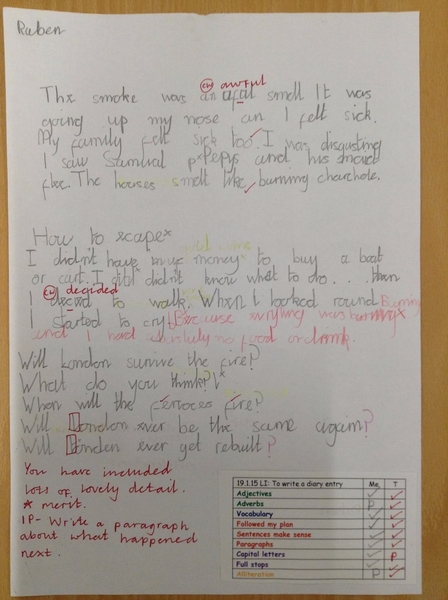 Ruben
awful
The smoke was an ufal smell It was
going up my nose an I felt sick.
My family felt sick too. I was disgusting
I saw Samual pepys and his
The houses smelt like burning
How to scape
I didn't have much money to buy a boat
or cart. I didn't know what to do .... then
decided
I to walk. When I looked round
I started to cry. Because everything was burning
and I had absolutely no food or drink.
Will London survive the fire?
What do you think?
When will the feroces fire?
Will London ever be the same again?
Will London ever get rebuilt?
You have included
lots of lovely detail.
* merit.
IP- Write a paragraph
about what happened
next.
19.1.15 LI: To write a diary entry Me T
Adjectives
Adverbs P
Vocabulary
Followed my plan
Sentences make sense
Paragraphs
Capital letters P
Full stops
Alliteration P